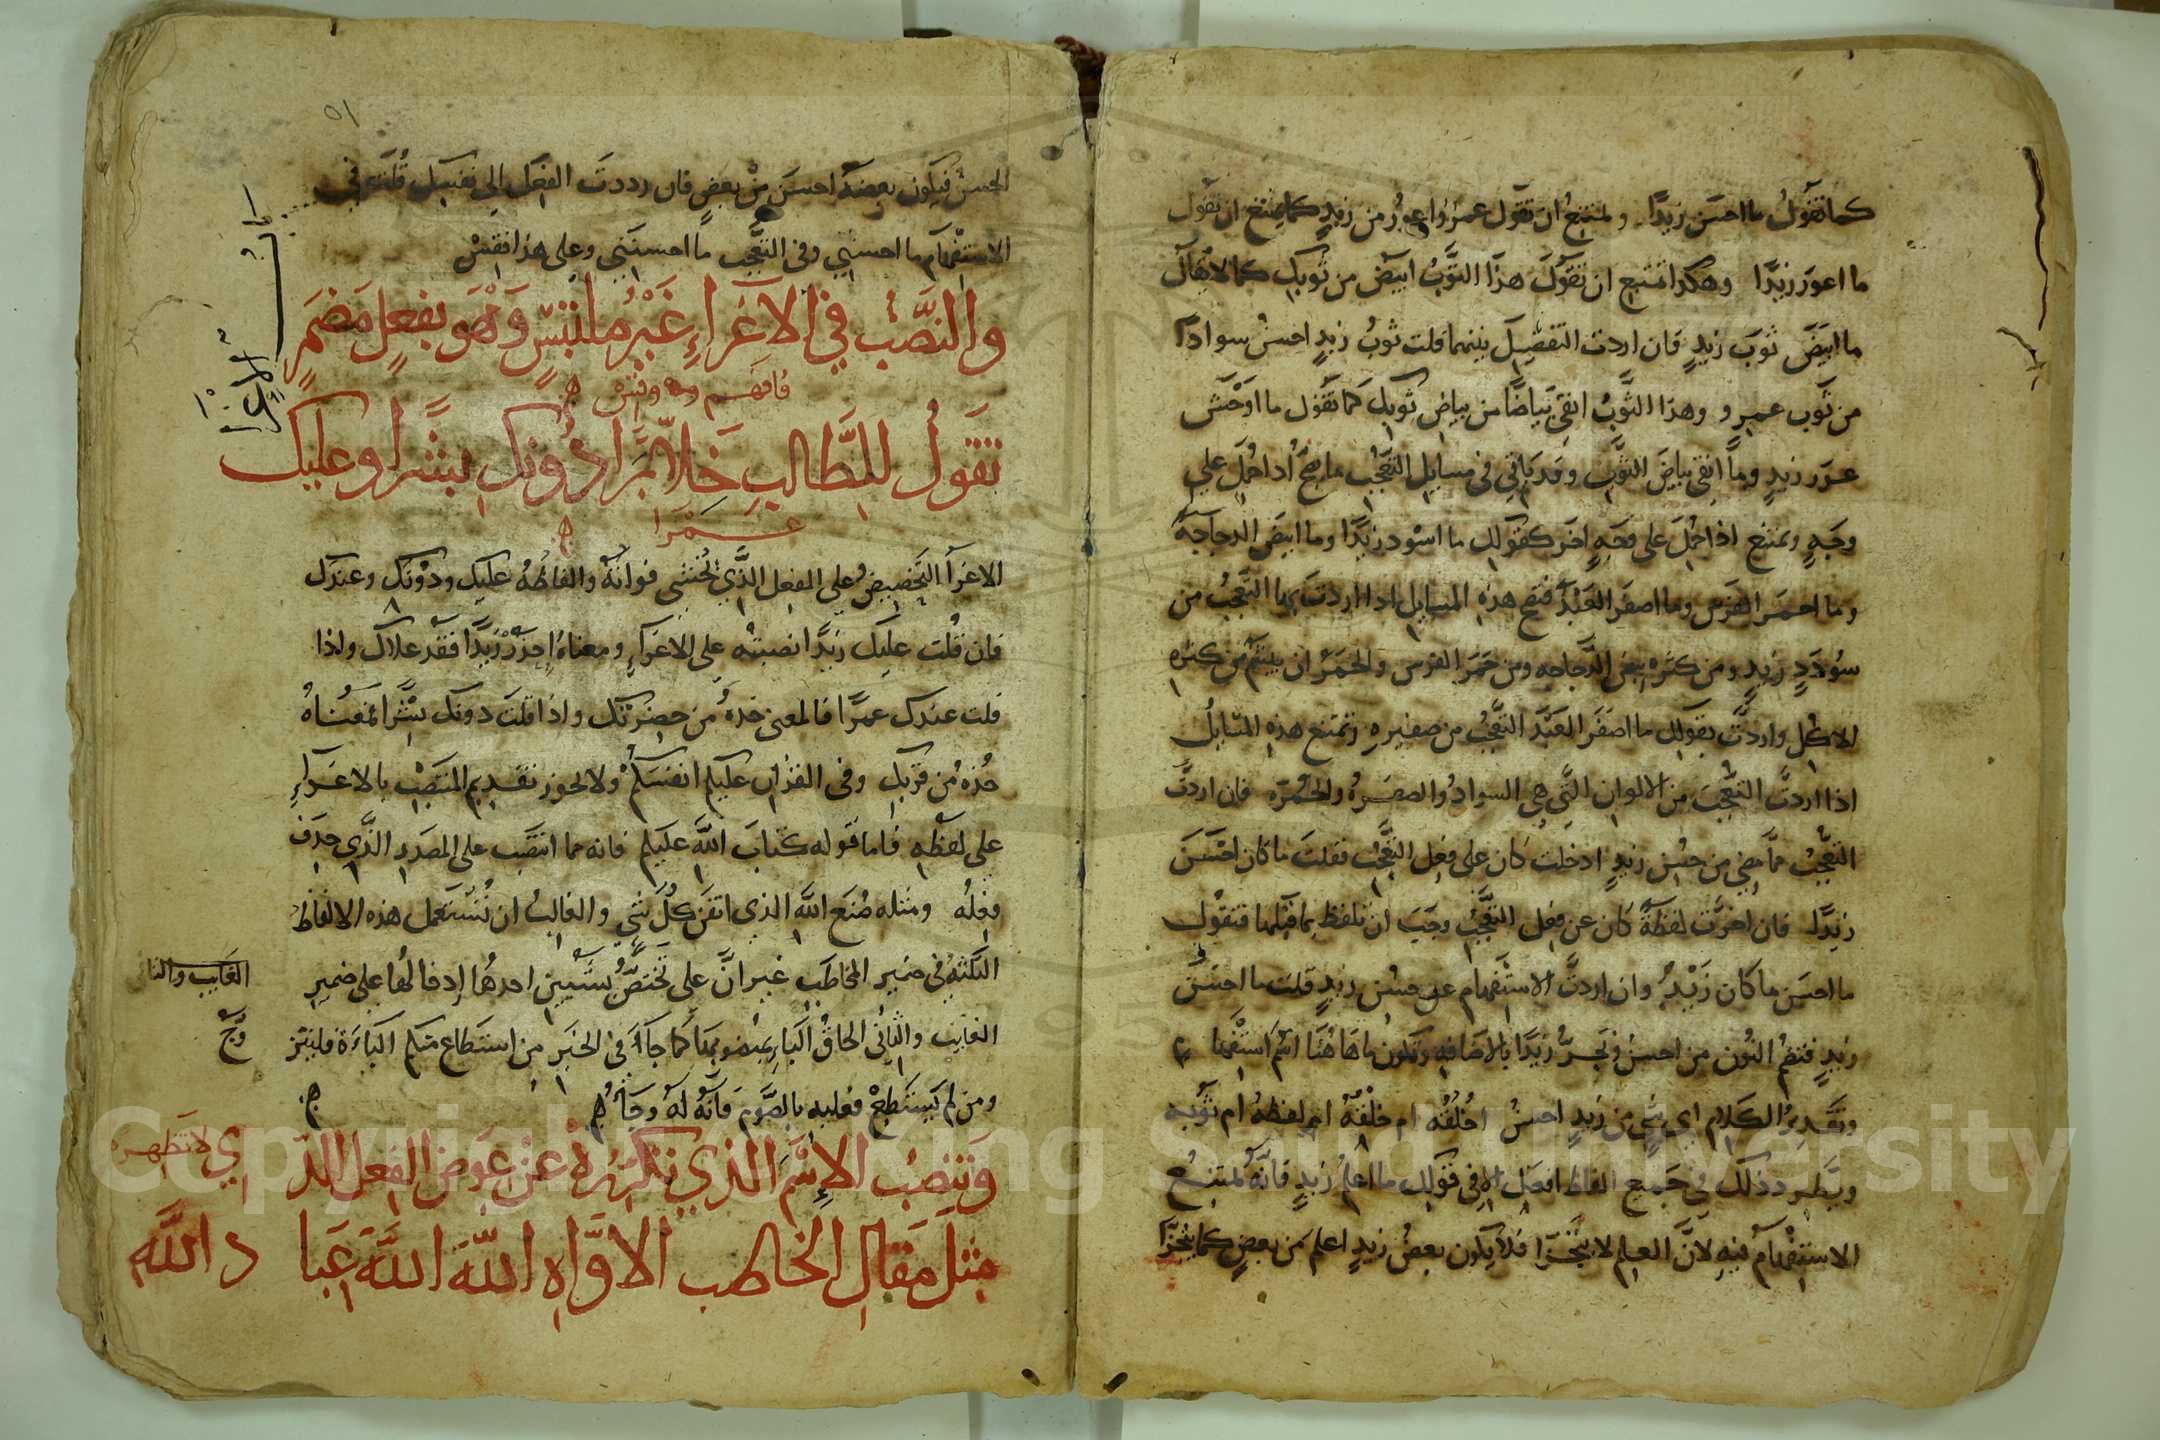 كما تقول ما احسن زيدًا ويمتنع ان تقول عمرو اعور من زيدٍ كما يمتنع ان تقول
ما اعور زيدًا وهكذا تمتنع ان تقول هذا الثوب ابيض من ثوبك كما لا يقال
ما ابيض ثوب زيدٍ فان اردت التفضيل بينهما قلت ثوب زيدٍ احسن سوادًا
من ثوب عمرو وهذا الثوب انقى بياضًا من بياض ثوبك كما تقول ما اوحش
عور زيدٍ وما انقى بياض الثوب وقد ياتي في مسايل التعجب ما يصح اذا حمل علي
وجهٍ ويمتنع اذا حمل على وجهٍ اخر كقولك ما اسود زيدًا وما ابيض الدجاجة
وما احمر الفرس وما اصفر العبد فتصح هذه المسايل اذا اردت بها التعجب من
سؤدد زيدٍ ومن كثرة بيض الدجاجه ومن حمر الفرس والحمر ان ييشم من كثره
الاكل واردت بقولك ما اصفر العبد التعجب من صفيره وتمتنع هذه المسايل
اذا اردت التعجب من الالوان التي هي السواد والصفرة والحمره فان اردت
التعجب مما مضى من حسن زيدٍ ادخلت كان على فعل التعجب فقلت ما كان احسن
زيدًا فان اخرت لفظة كان عن فعل التعجب وجب ان تلفظ بما قبلها فتقول
ما احسن ما كان زيدٌ وان اردت الاستفهام عن حسن زيدٍ قلت ما احسن
زيدٍ فتضم النون من احسن وتجر زيدًا بالاضافه وتكون ما هاهنا اسم استفهام
وتقدير الكلام اي شي من زيدٍ احسن اخلقه ام خلقه ام لفظه ام ثوبه
ويطرد ذلك في جميع الفاظ افعل الا في قولك ما اعلم زيدٍ فانه يمتنع
الاستفهام فيه لان العلم لا يتجزا فلا يكون بعض زيدٍ اعلم من بعضٍ كما يتجزا
٥١
الحسن فيكون بعضه احسن من بعضٍ فان رددت الفعل الى نفسك قلت في
الاستفهام ما احسني وفي التعجب ما احسنني وعلى هذا فقس
والنصب في الاغراء غير ملتبس وهو بفعل مضمرٍ
فافهم وقس
تقول للطالب خلا برا دونك بشرا وعليك
عمرا
الاغرا التحضيض على الفعل الذي يخشى فواته والفاظه عليك ودونك وعندك
فان قلت عليك زيدًا نصبته على الاغراء ومعناه احذر زيدًا فقد علاك واذا
قلت عندك عمرًا فالمعنى خذه من حضرتك واذا قلت دونك بشرًا فمعناه
خذه من قربك وفي القران عليكم انفسكم ولا يجوز تقديم المنتصب بالاغراء
على لفظه فاما قوله كتاب الله عليكم فانه مما انتصب على المصدر الذي حذف
فعله ومثله صنع الله الذي اتقن كل شي والغالب ان تستعمل هذه الالفاظ
الثلثه في ضمير المخاطب غير ان على تختص بشيين احدهما ادخالها على ضمير
الغايب والثاني الحاق الباء بمنصوبها كما جاء في الخبر من استطاع منكم الباءة فليتزوج
ومن لم يستطع فعليه بالصوم فانه له وجاء
وتنصب الاسم الذي تكرره عن عوض الفعل الذي لا تظهره
مثل مقال الخاطب الاواه الله الله عباد الله